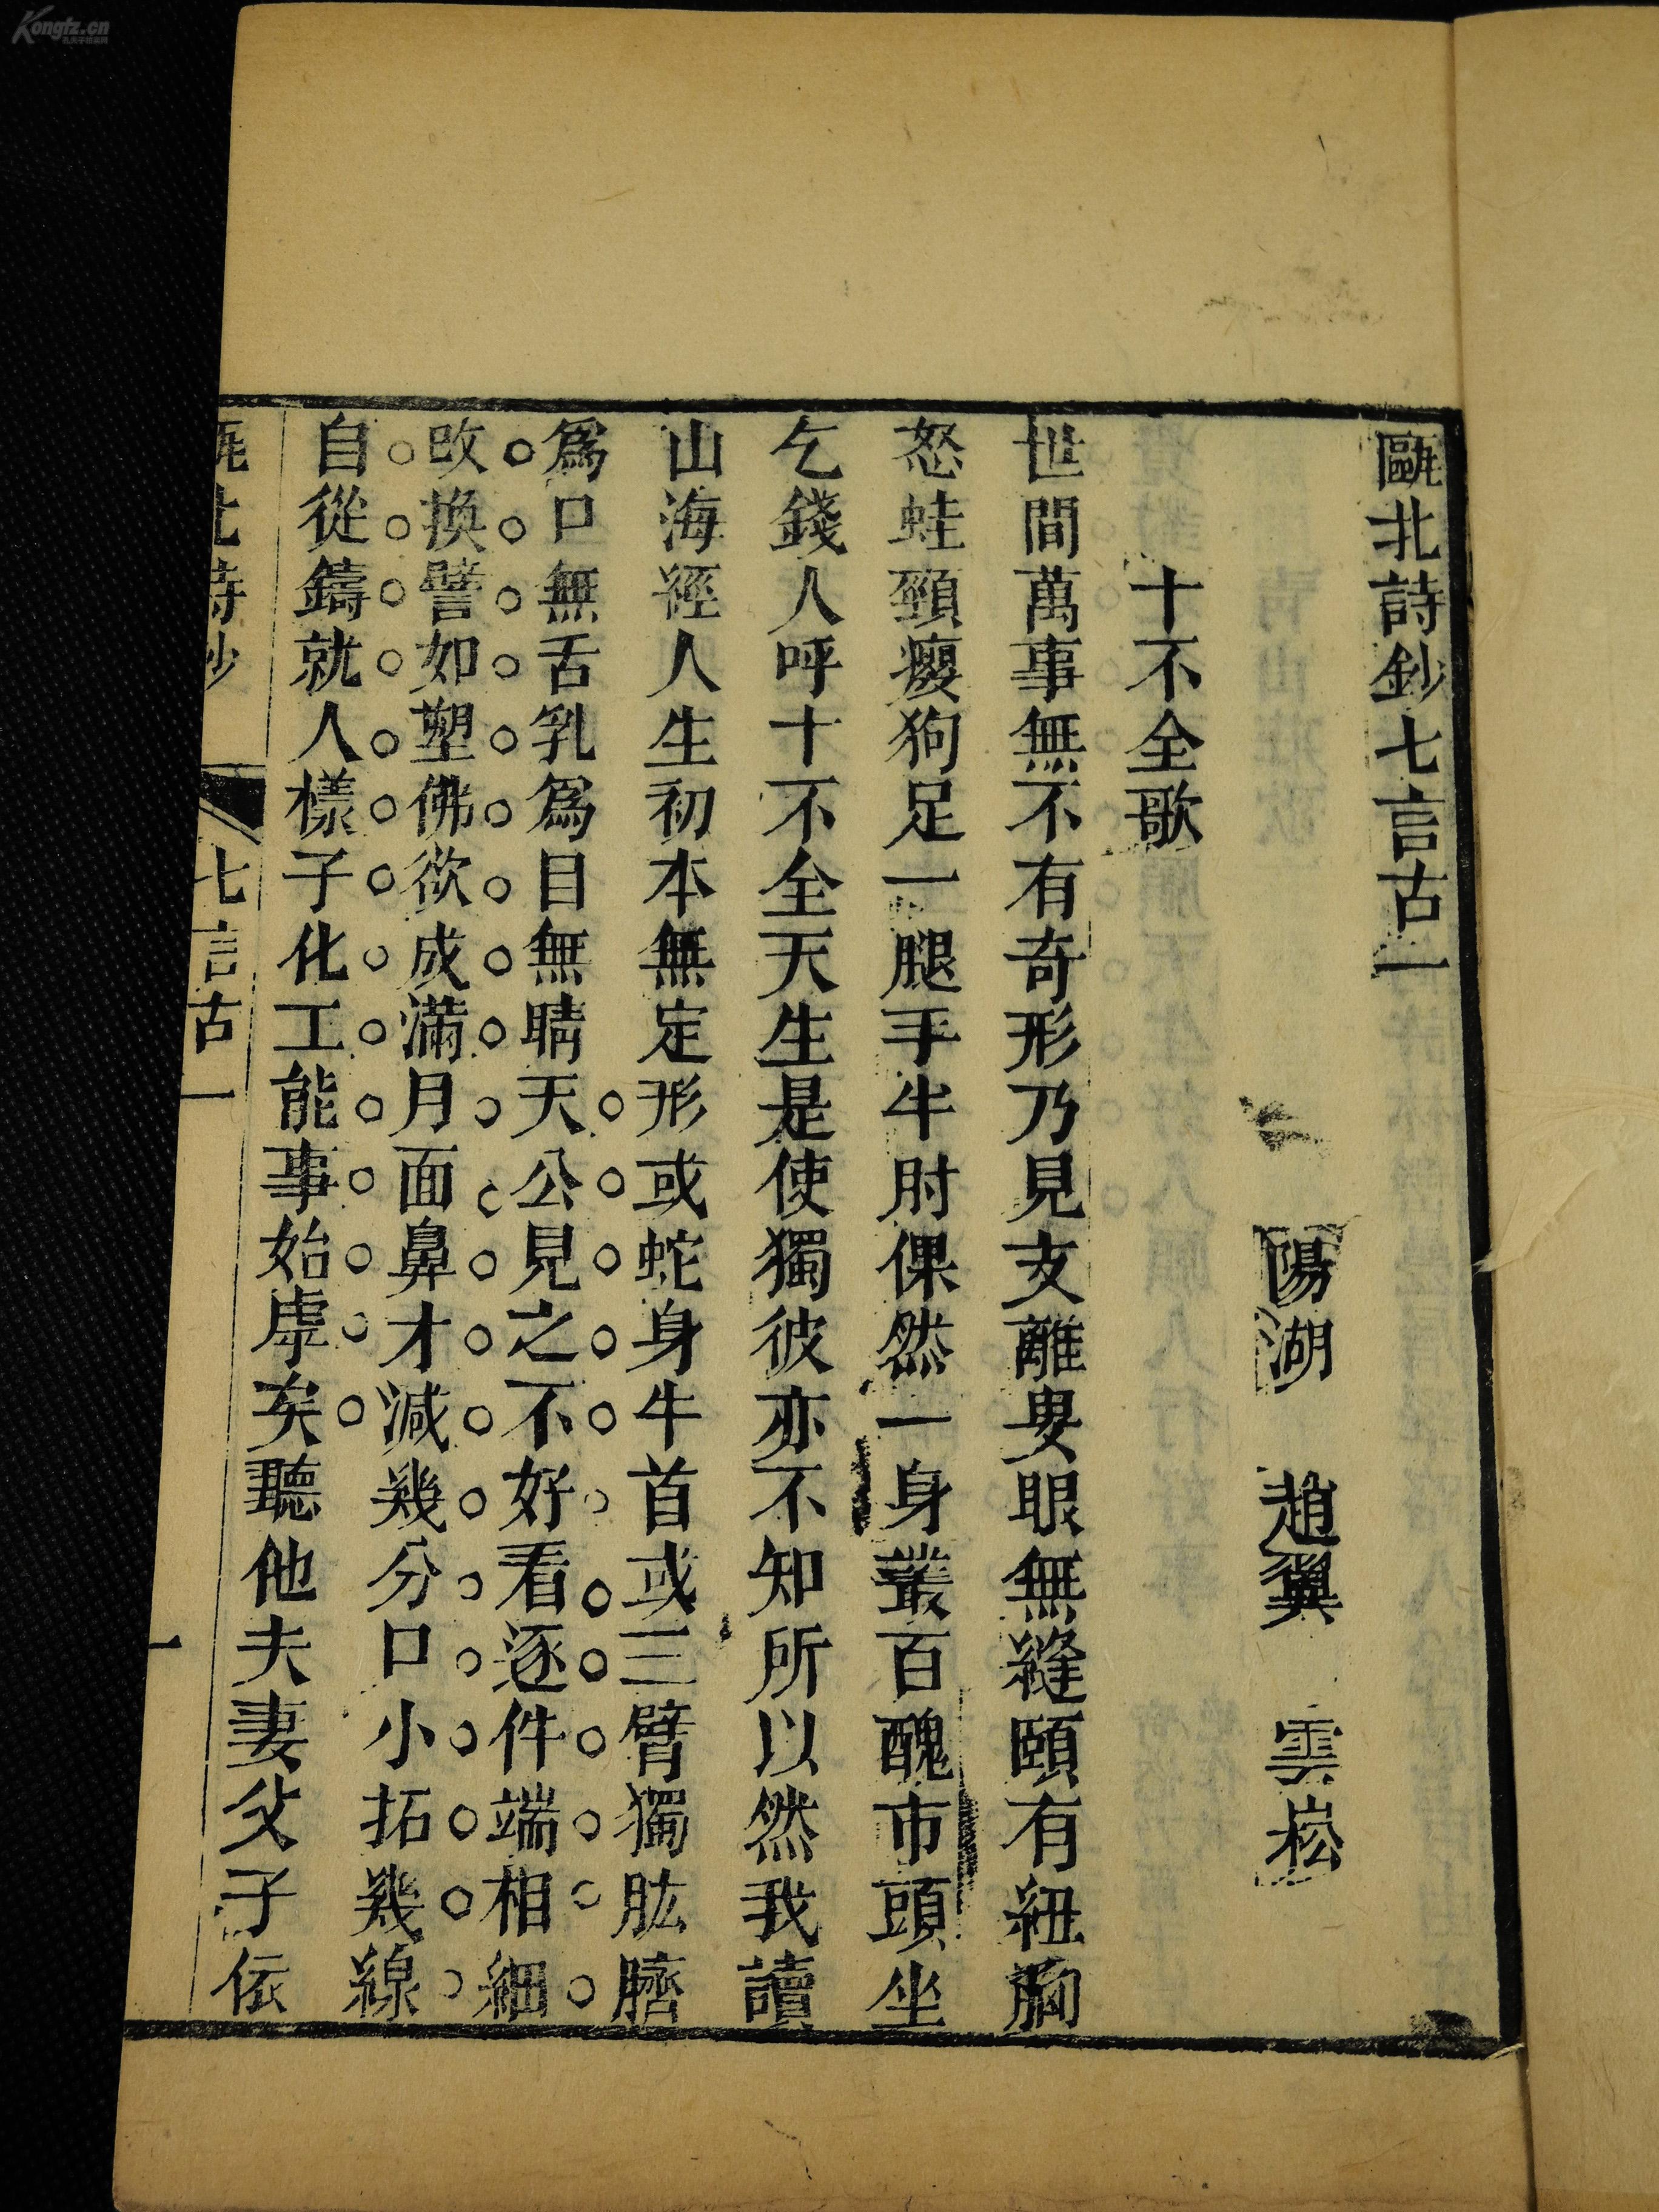 甌北詩鈔七言古一
陽湖 趙翼 雲崧
十不全歌
世間萬事無不有奇形乃見支離叟眼無縫頤有紐胸
怒蛙頸癭狗足一腿手半肘倮然一身叢百醜市頭坐
乞錢人呼十不全天生是使獨彼亦不知所以然我讀
山海經人生初本無定形或蛇身牛首或三臂獨肱臍
爲口無舌乳爲目無睛天公見之不好看逐件端相細
改換譬如塑佛欲成滿月面鼻才減幾分口小拓幾線
自從鑄就人樣子化工能事始虖矣聽他夫妻父子依
甌北詩鈔
七言古一
一
Kongfz.cn